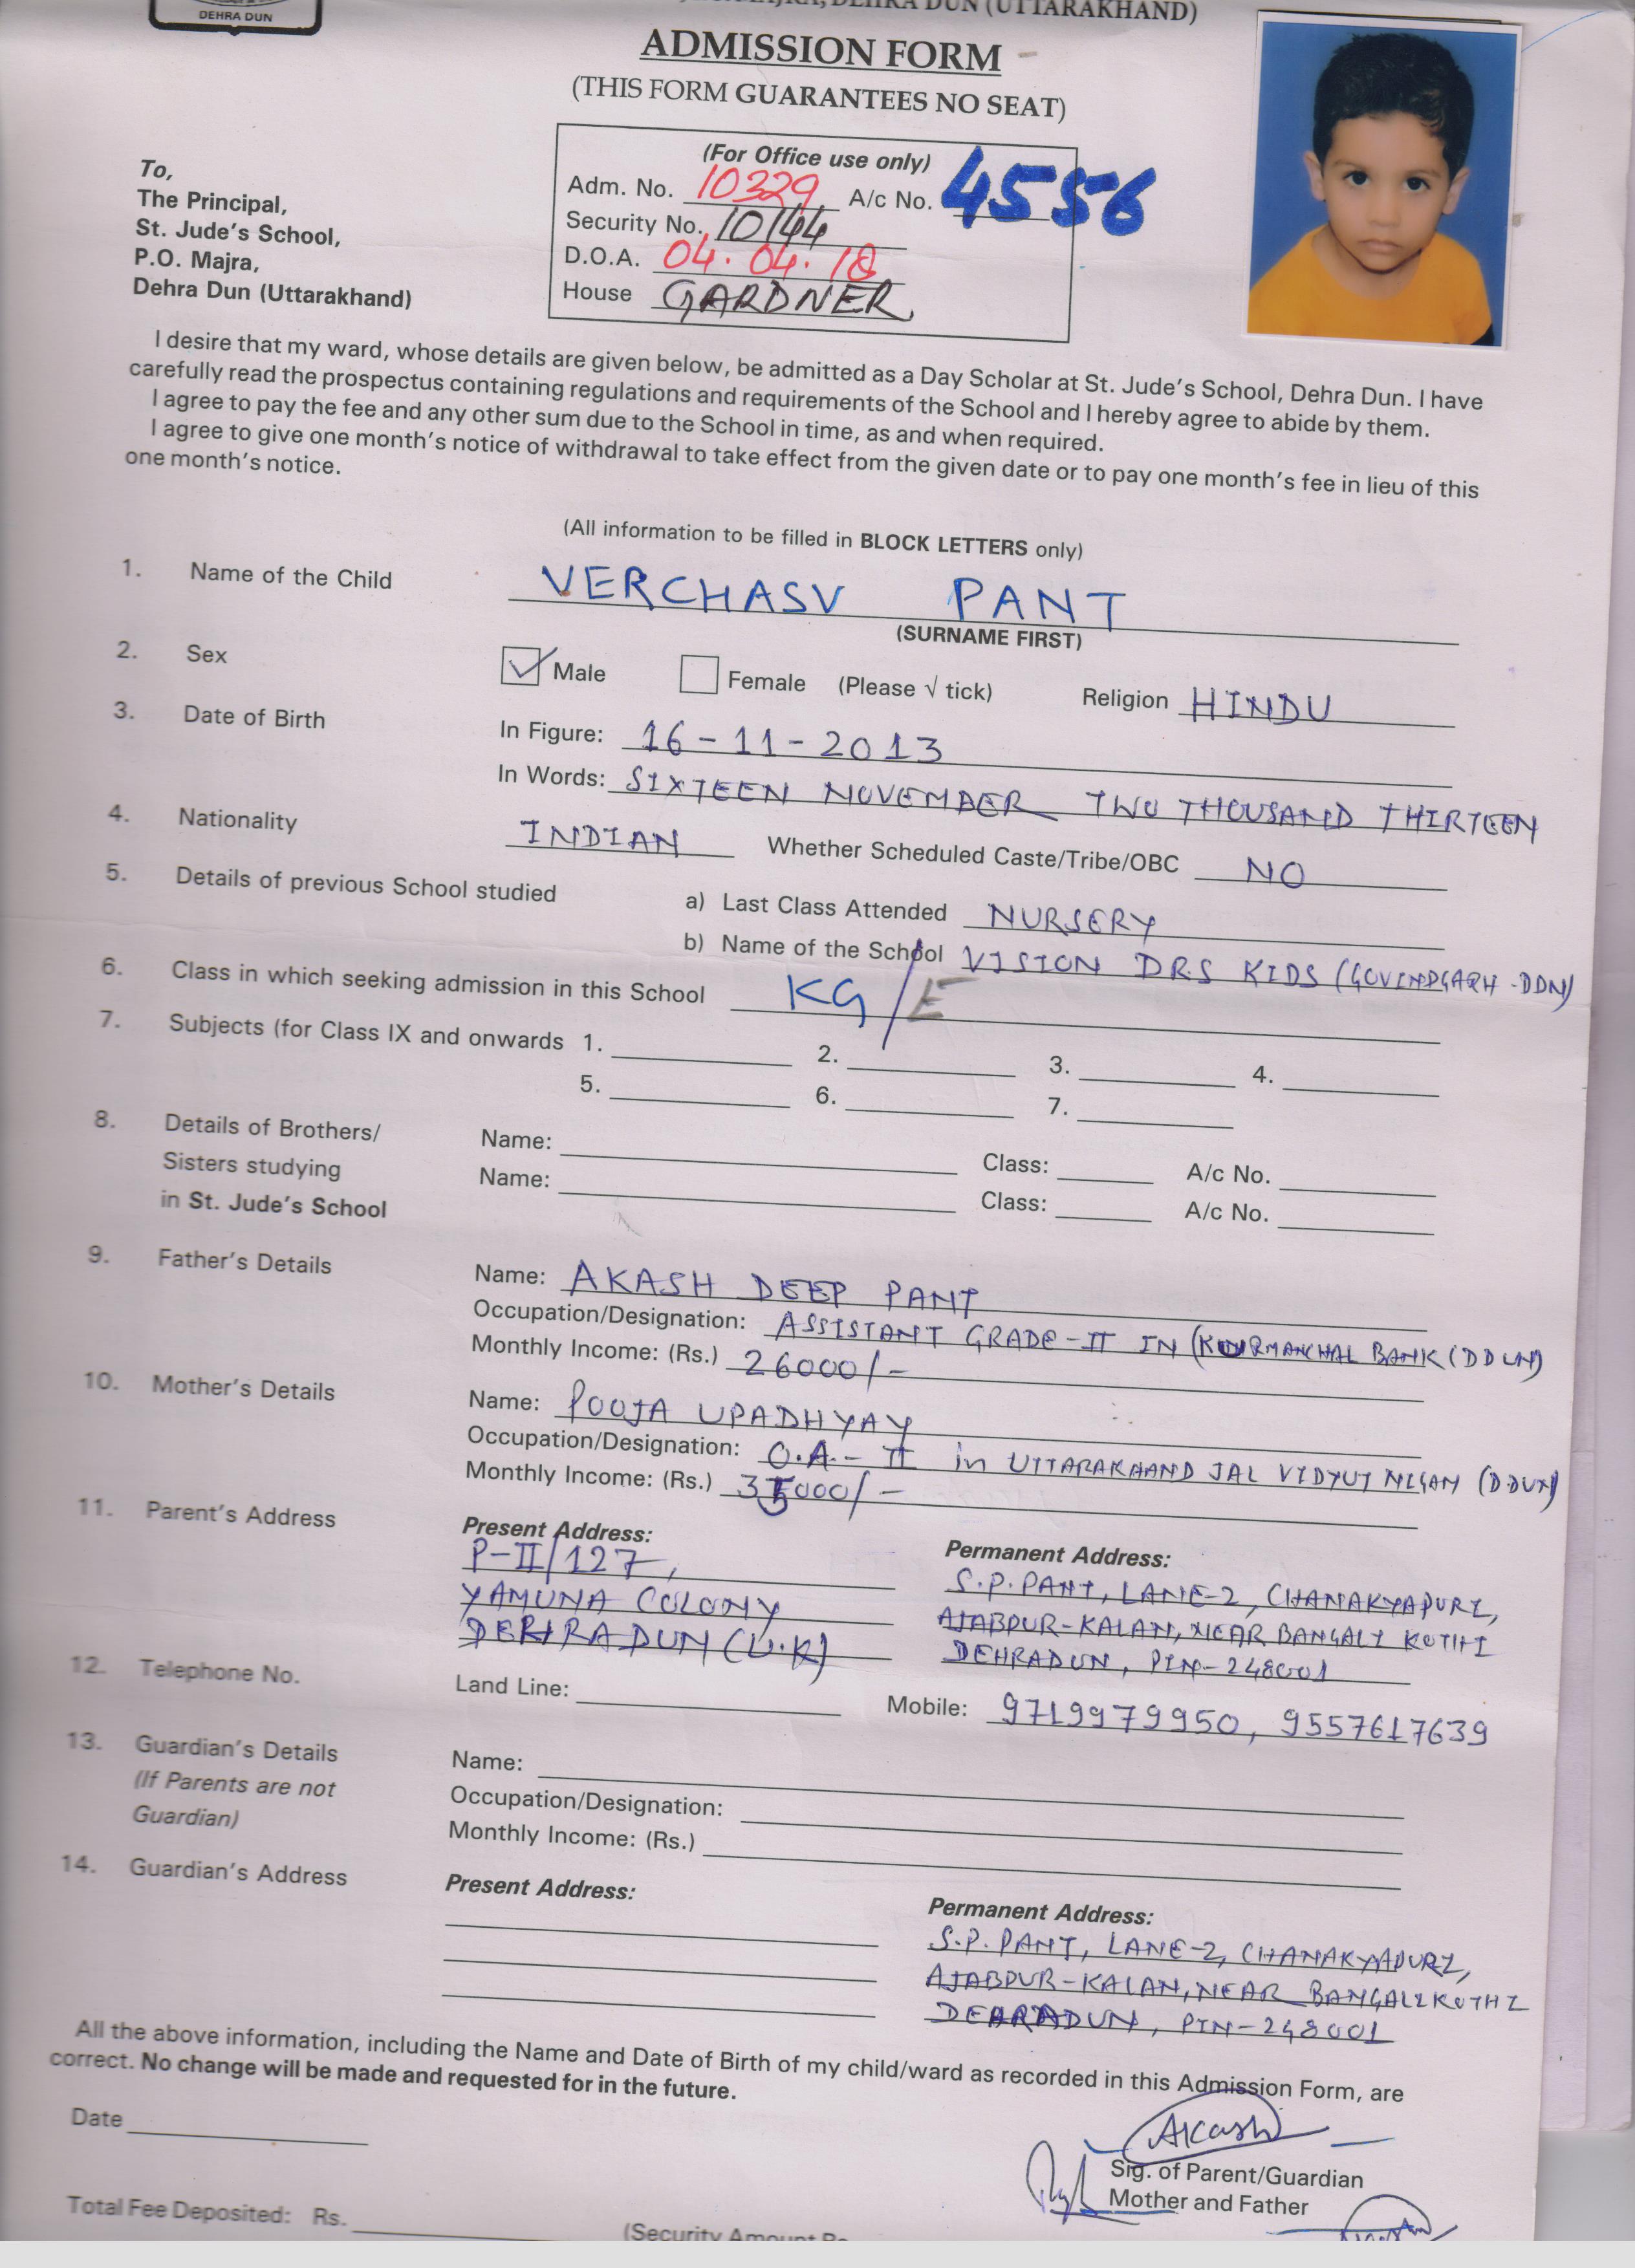 DEHRA DUN
DEHRA DUN (UTTARAKHAND)
ADMISSION FORM
(THIS FORM GUARANTEES NO SEAT)
(For Office use only)
Adm. No. 10329 A/c No. 4556
Security No. 10144
D.O.A. 04.04.18
House GARDNER
To,
The Principal,
St. Jude's School,
P.O. Majra,
Dehra Dun (Uttarakhand)
I desire that my ward, whose details are given below, be admitted as a Day Scholar at St. Jude's School, Dehra Dun. I have
carefully read the prospectus containing regulations and requirements of the School and I hereby agree to abide by them.
I agree to pay the fee and any other sum due to the School in time, as and when required.
I agree to give one month's notice of withdrawal to take effect from the given date or to pay one month's fee in lieu of this
one month's notice.
(All information to be filled in BLOCK LETTERS only)
1. Name of the Child VERCHASV PANT
(SURNAME FIRST)
2. Sex Male Female (Please √ tick) Religion HINDU
3. Date of Birth In Figure: 16-11-2013
In Words: SIXTEEN NOVEMBER TWO THOUSAND THIRTEEN
4. Nationality INDIAN Whether Scheduled Caste/Tribe/OBC NO
5. Details of previous School studied a) Last Class Attended NURSERY
b) Name of the School VISION DRS KIDS (GOVINDGARH-DDN)
6. Class in which seeking admission in this School KG/E
7. Subjects (for Class IX and onwards 1. 2. 3. 4.
5. 6. 7.
8. Details of Brothers/ Name: Class: A/c No.
Sisters studying Name: Class: A/c No.
in St. Jude's School
9. Father's Details Name: AKASH DEEP PANT
Occupation/Designation: ASSISTANT GRADE-II IN (KURMANCHAL BANK (DDUN)
Monthly Income: (Rs.) 26000/-
10. Mother's Details Name: POOJA UPADHYAY
Occupation/Designation: O.A.-II in UTTARAKHAND JAL VIDYUT NIGAM (D.DUN)
Monthly Income: (Rs.) 35000/-
11. Parent's Address Present Address: Permanent Address:
P-II/127, S.P. PANT, LANE-2, CHANAKYAPURI,
YAMUNA COLONY AJABPUR-KALAN, NEAR BANGALI KOTHI
DEHRADUN (U.K) DEHRADUN, PIN-248001
12. Telephone No. Land Line: Mobile: 9719979950, 9557617639
13. Guardian's Details Name:
(If Parents are not Occupation/Designation:
Guardian) Monthly Income: (Rs.)
14. Guardian's Address Present Address: Permanent Address:
S.P. PANT, LANE-2, CHANAKYAPURI,
AJABPUR-KALAN, NEAR BANGALI KOTHI
DEHRADUN, PIN-248001
All the above information, including the Name and Date of Birth of my child/ward as recorded in this Admission Form, are
correct. No change will be made and requested for in the future.
Date
Akash
Sig. of Parent/Guardian
Mother and Father
Total Fee Deposited: Rs. (Security Amount Rs.